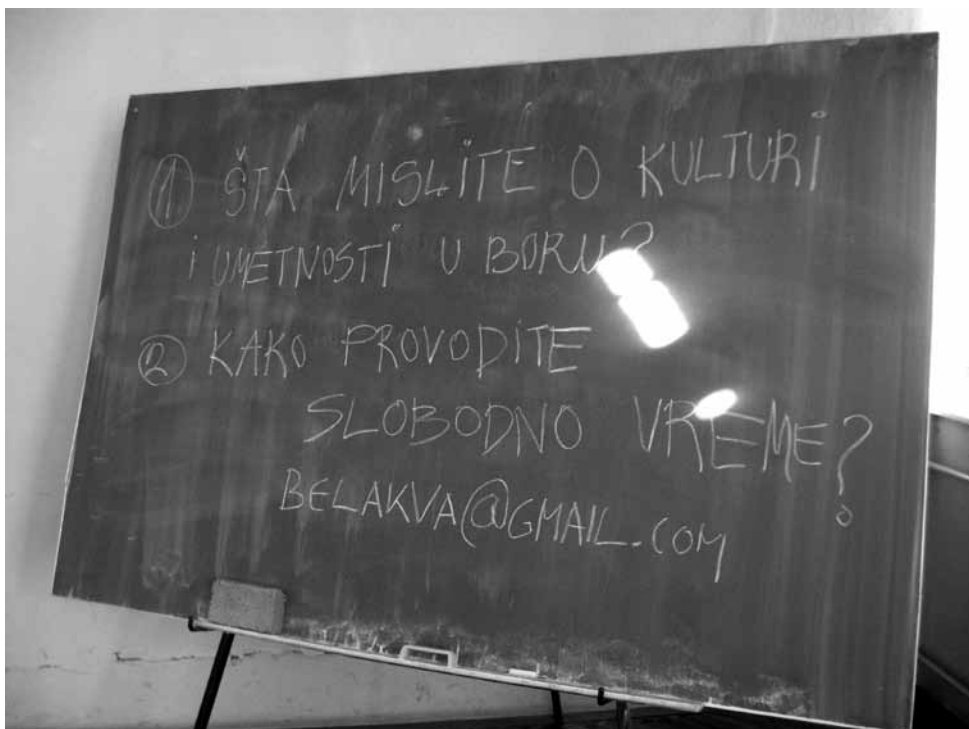 1. ŠTA MISLITE O KULTURI
I UMETNOSTI U BORU?
2 KAKO PROVODITE
SLOBODNO VREME?
BELAKVA@GMAIL.COM